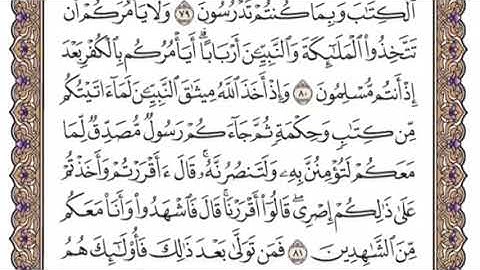 ٱلْكِتَٰبَ وَبِمَا كُنتُمْ تَدْرُسُونَ ٧٩ وَلَا يَأْمُرَكُمْ أَن
تَتَّخِذُوا۟ ٱلْمَلَٰٓئِكَةَ وَٱلنَّبِيِّۦنَ أَرْبَابًا ۗ أَيَأْمُرُكُم بِٱلْكُفْرِ بَعْدَ
إِذْ أَنتُم مُّسْلِمُونَ ٨٠ وَإِذْ أَخَذَ ٱللَّهُ مِيثَٰقَ ٱلنَّبِيِّۦنَ لَمَآ ءَاتَيْتُكُم
مِّن كِتَٰبٍ وَحِكْمَةٍ ثُمَّ جَآءَكُمْ رَسُولٌ مُّصَدِّقٌ لِّمَا
مَعَكُمْ لَتُؤْمِنُنَّ بِهِۦ وَلَتَنصُرُنَّهُۥ ۚ قَالَ ءَأَقْرَرْتُمْ وَأَخَذْتُمْ
عَلَىٰ ذَٰلِكُمْ إِصْرِى ۖ قَالُوٓا۟ أَقْرَرْنَا ۚ قَالَ فَٱشْهَدُوا۟ وَأَنَا۠ مَعَكُم
مِّنَ ٱلشَّٰهِدِينَ ٨١ فَمَن تَوَلَّىٰ بَعْدَ ذَٰلِكَ فَأُو۟لَٰٓئِكَ هُمُ